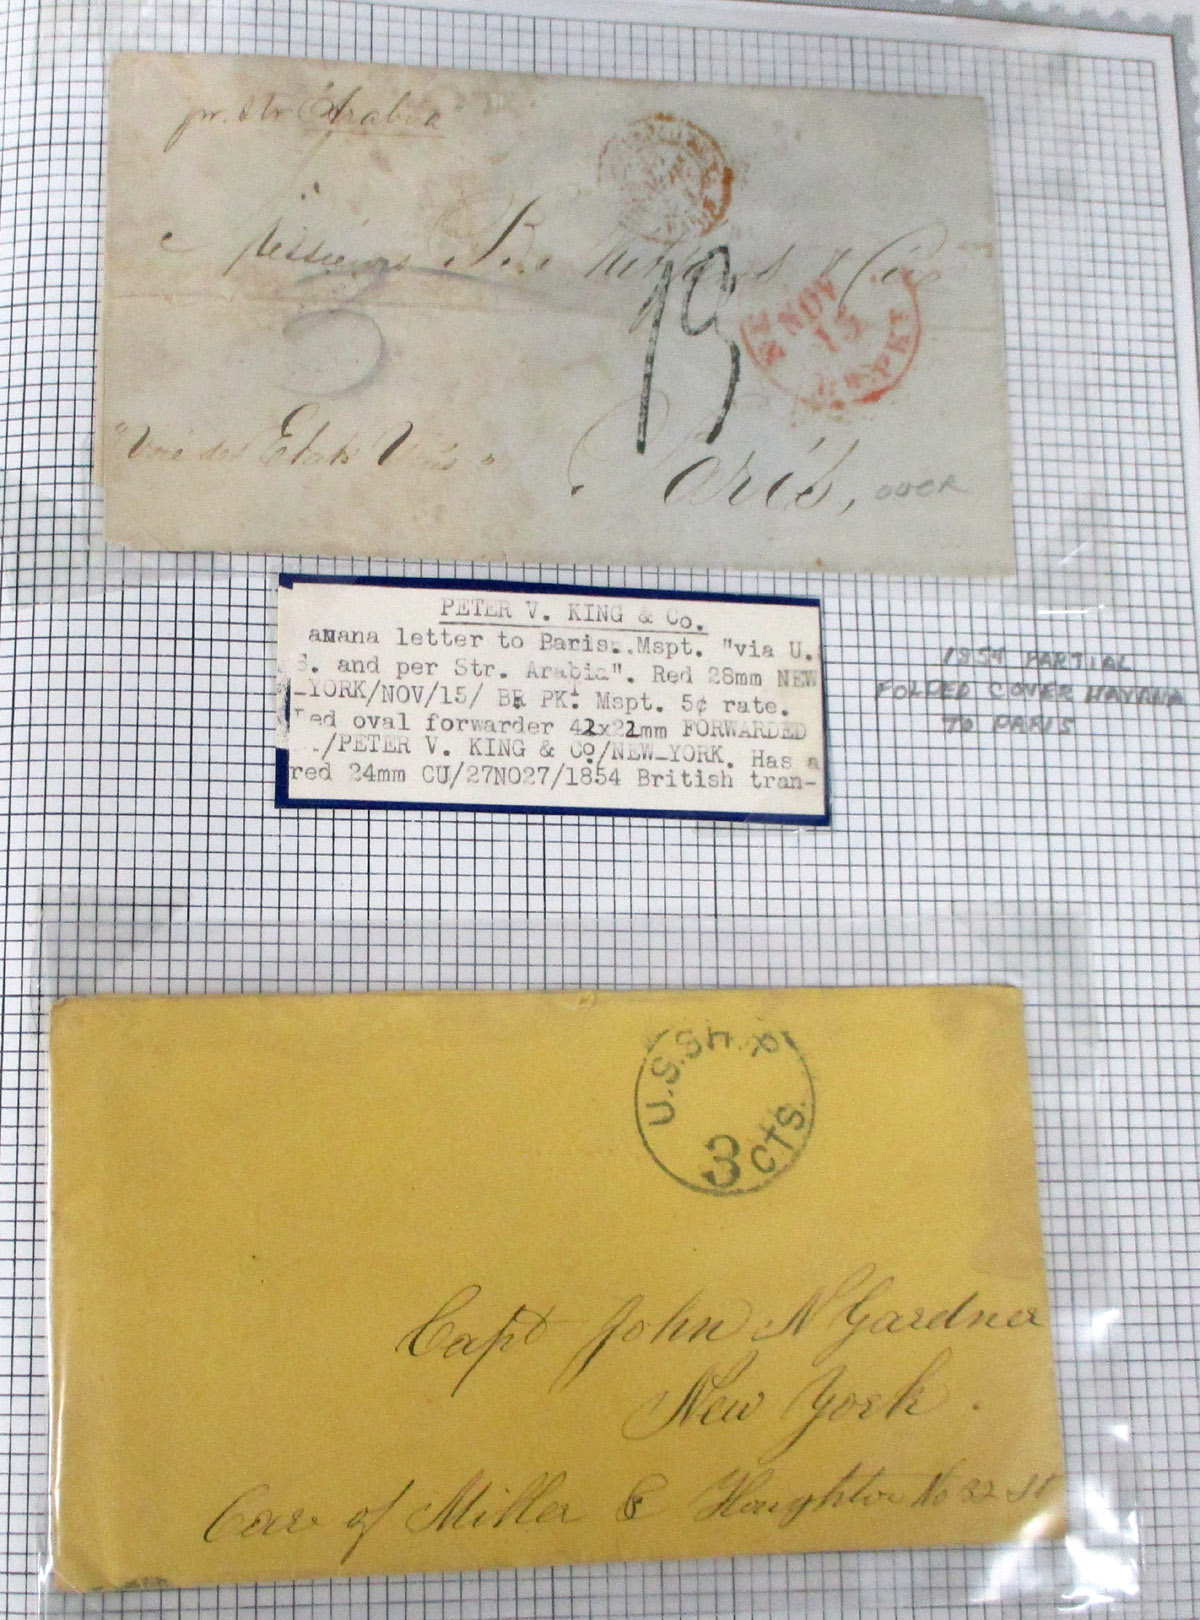 pr. Str Arabia
Messieurs B. & Cie
5
19
NEW NOV 15 BR. PKT
"Voie des Etats Unis"
Paris,
OVER
PETER V. KING & Co.
aNana letter to Baris:.Mspt. "via U.
S. and per Str. Arabia". Red 28mm NEW
_YORK/NOV/15/ BR PKT. Mspt. 5¢ rate.
Red oval forwarder 42x22mm FORWARDED
/PETER V. KING & Co/NEW_YORK. Has a
red 24mm CU/27NO27/1854 British tran-
1854 PARTIAL
FOLDED COVER HAVANA
TO PARIS
U.S. SHIP
3 CTS.
Capt John N Gardner
New York.
Care of Miller & Houghton No 32 St